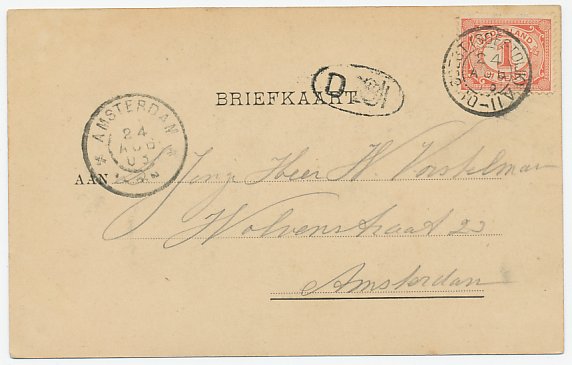 NEDERLAND
1
24
AUG
D
BRIEFKAART
AMSTERDAM
24
AUG
03
AAN
Jonge Heer H. Vorstelman
Wolvenstraat 23
Amsterdam